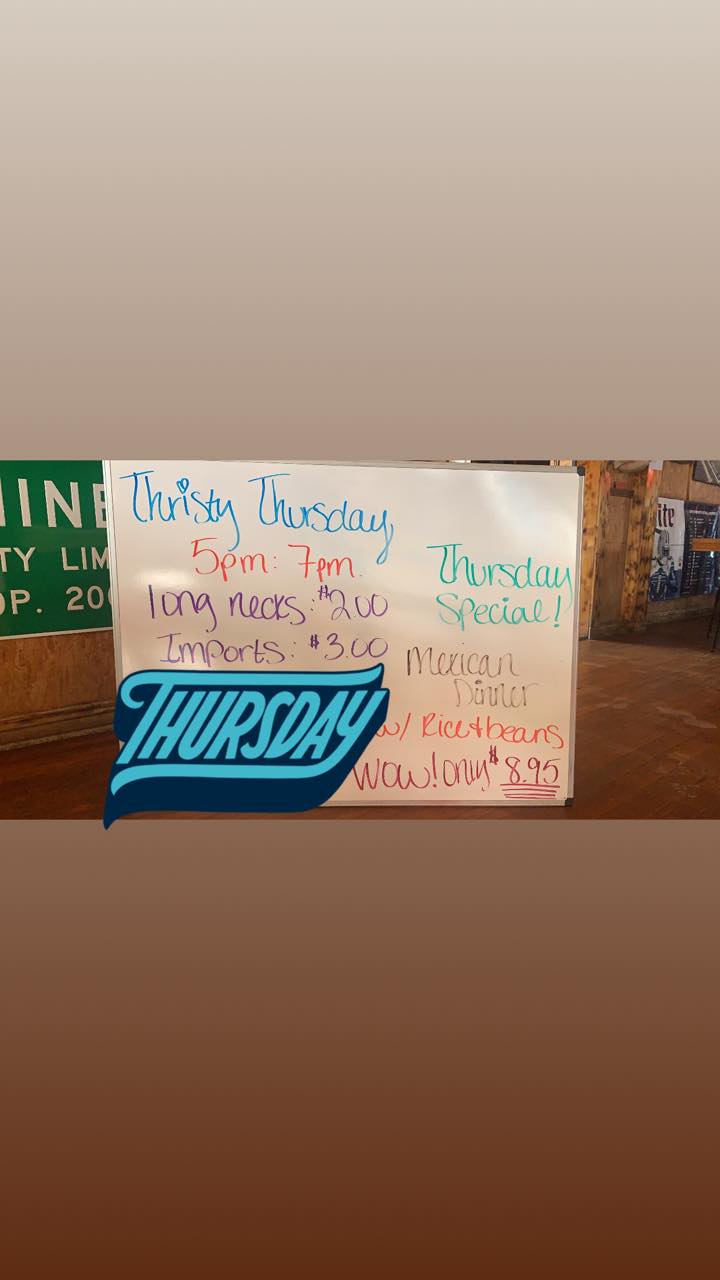 Thristy Thursday
5pm: 7pm.
long necks: $2.00
Imports: $3.00
Thursday
Special!
Mexican
Dinner
w/ Rice+beans
WOW! only $8.95
THURSDAY
TY LIM
OP. 200
ite